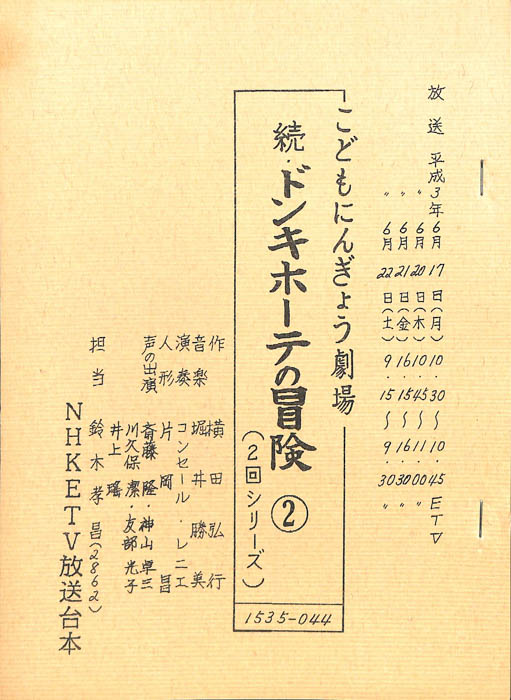 放送 平成3年6月17日(月)10.30〜10.45 ETV
〃 6月20日(木)10.45〜11.00 〃
〃 6月21日(金)16.15〜16.30 〃
〃 6月22日(土)9.15〜9.30 〃
こどもにんぎょう劇場
続・ドンキホーテの冒険 ②
(2回シリーズ)
1535-044
作 横田弘行
音楽 堀井勝美
演奏 コンセール・レニエ
人形 片岡昌
声の出演 斎藤隆・神山卓三
川久保潔・友部光子
井上瑤
担当 鈴木孝昌(2862)
NHKETV放送台本